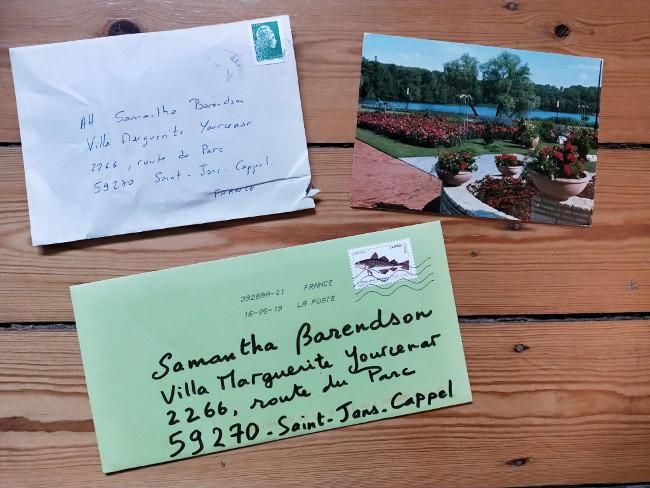 AH Samantha Barendson
Villa Marguerite Yourcenar
2266, route du Parc
59270 Saint-Jans-Cappel
FRANCE
39289A-01 FRANCE
16-05-19 LA POSTE
Samantha Barendson
Villa Marguerite Yourcenar
2266, route du Parc
59270-Saint-Jans-Cappel